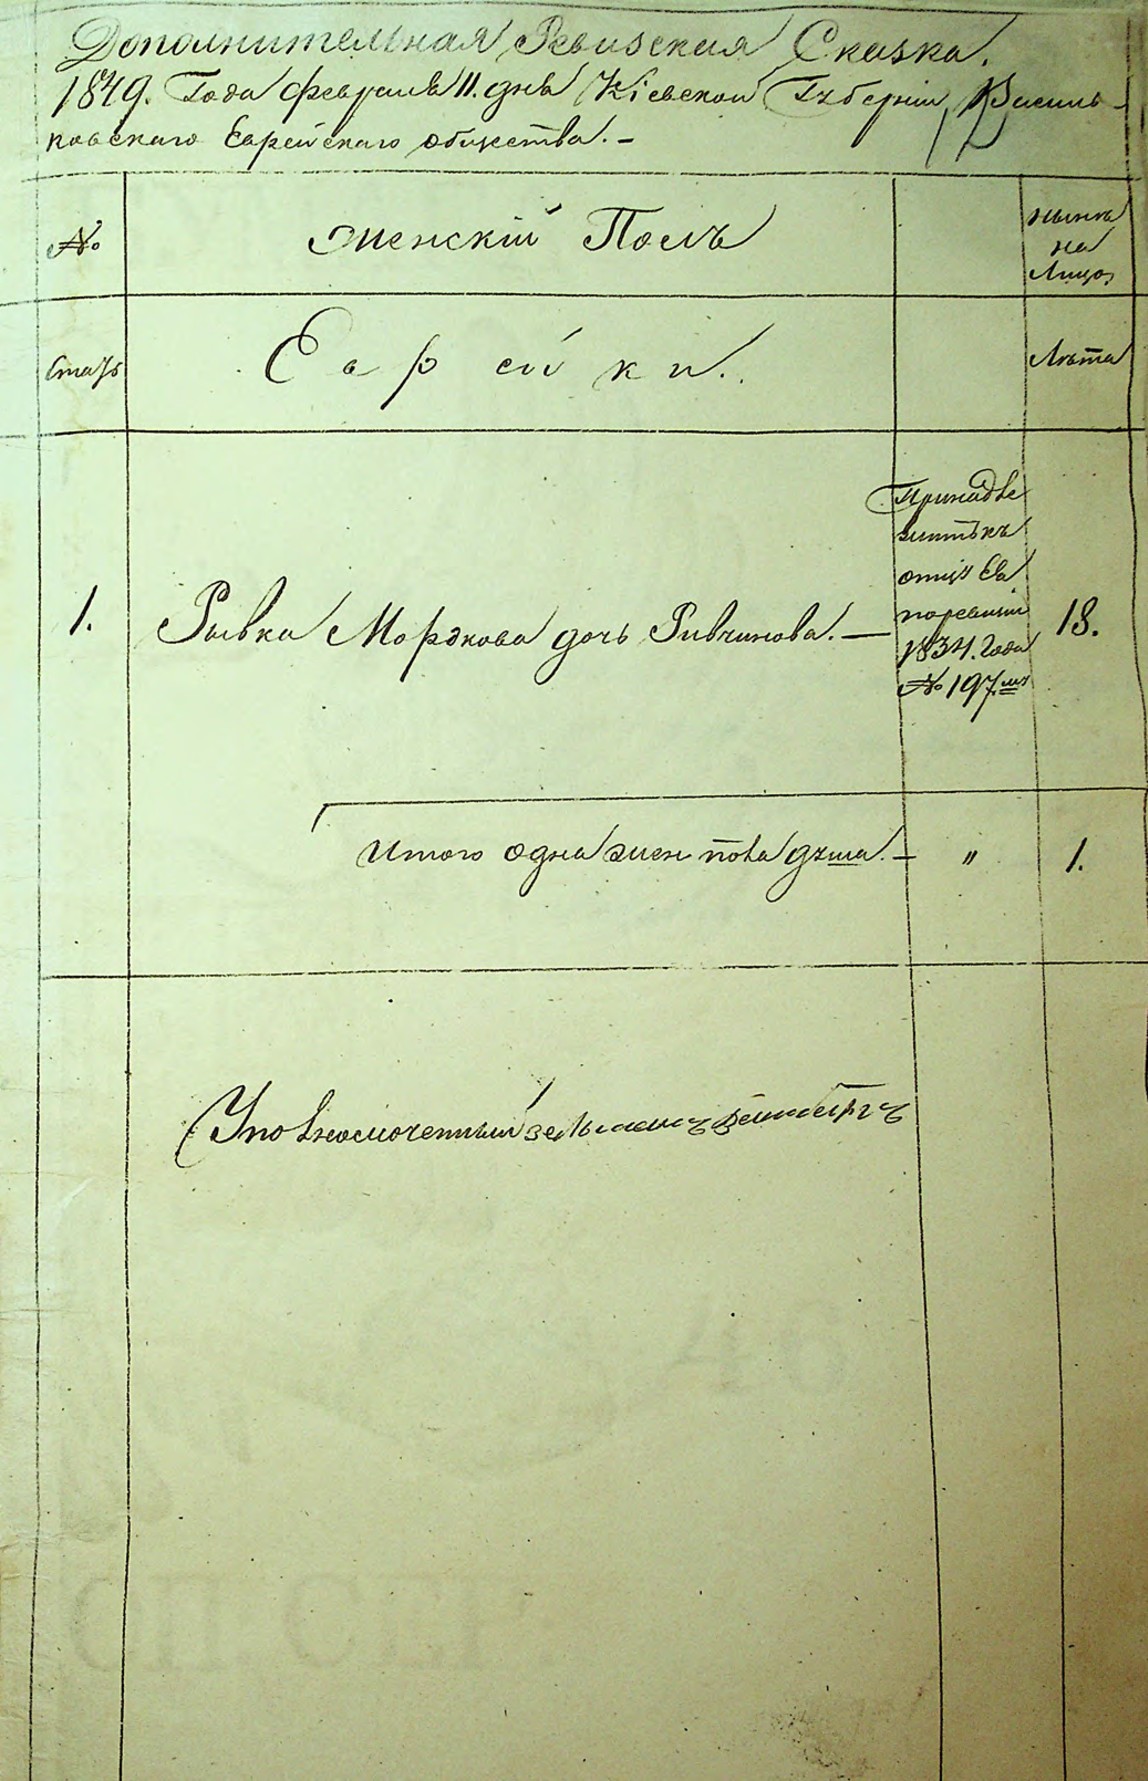 Дополнительная Ревизская Сказка.
1849. Года февраля 11. дня Кіевской Губерніи, Василь-
ковскаго Еврейскаго общества. –
№
женскій Полъ
нынѣ
на
Лицо,
Стать
Еврейки.
Лѣта
1.
Рывка Мордкова дочь Ривчинова. —
Принадле
житъ къ
отцу Ея
по ревизіи
1834. Года
№ 197.мъ
18.
Итого одна жен пола душа. –
"
1.
Уполномоченный